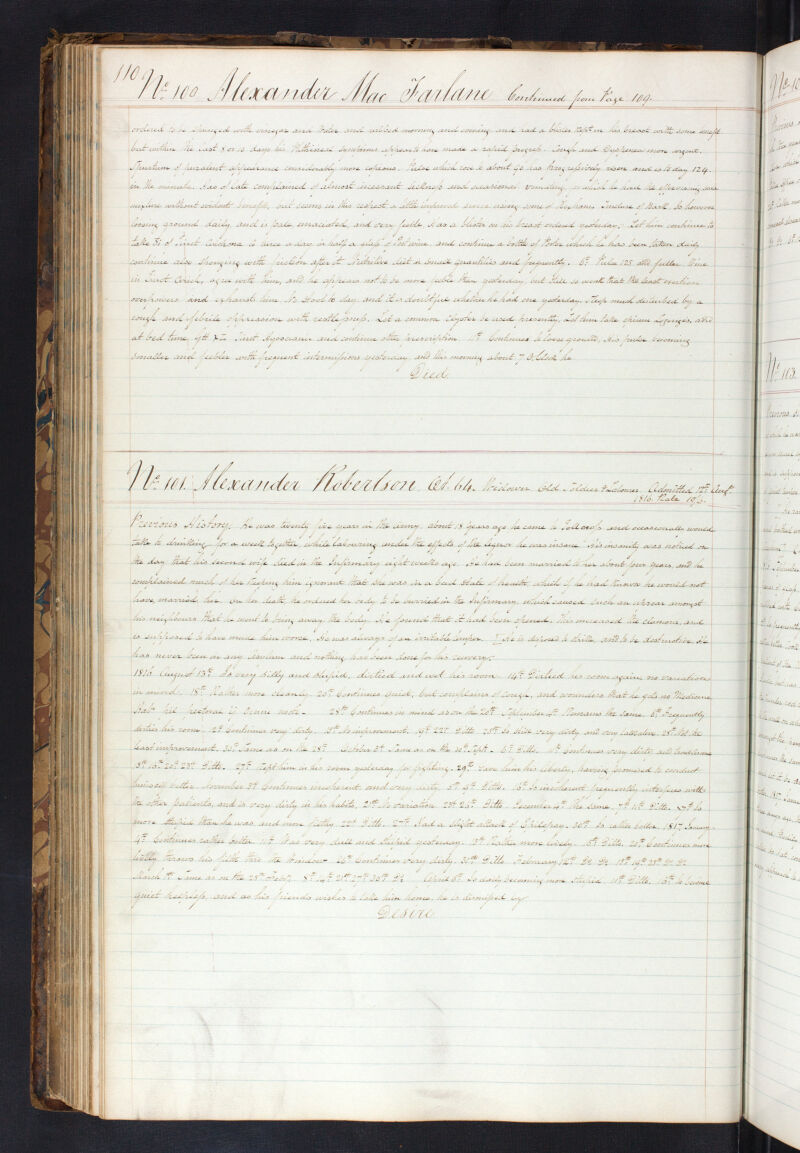 110
No. 100 Alexander Mac Farlane Continued from Page 109.
ordered to be Spunged with vinegar and Water and rubbed morning and evening and had a blister kept on his breast with some benefit
but within the last 8 or 10 days his Phthisical Symptoms appear to have made a rapid progress. Cough and Dyspnoea more urgent.
Sputum of purulent appearance considerably more copious. Pulse which rose to about 90 has progressively risen and is to day 124.
in the minute. Has of late complained of almost incessant Sickness and occasional vomiting, for which he had the effervescing
mixture without evident benefit, but seems in this respect a little better since using some of Huxham's Tincture of Bark. Is however
loosing ground daily, and is pale, emaciated, and very feeble. Has a blister on his breast ordered yesterday. Let him continue to
take of Tinct Cinchona 3 times a day in half a glass of Port wine, and continue a bottle of Porter which he has been taken daily
continue also Spunging with friction after it. Nutritive diet in small quantities and frequently. 6th Pulse 125 still fuller. Wine
and Tinct Cinch. agree with him, and he appears not to be more feeble than yesterday, but still so weak that the least exertion
overpowers and exhausts him. No Stool to day and it is doubtful whether he had one yesterday. Sleep much disturbed by a
cough and febrile oppression with restlessness. Let a common Clyster be used presently. Let him take opium Lozenges, also
at bed time Tinct Hyosciami and continue other prescriptions. 11th Continues to loose ground, his pulse becoming
smaller and feebler with frequent intermissions yesterday and this morning about 7 O'Clock he
Died
No. 101. Alexander Robertson Æt. 64. Widower Old Soldier & Labourer Admitted 12th Augt.
1816. Rate 19/5.
Previous History. He was twenty five years in the army, about 18 years ago he came to and occasionally would
take to drinking for a week together, while labouring under the effects of the liquor he was insane. His insanity was noticed on
the day that his second wife died in the Infirmary eight weeks ago. He had been married to her about four years, and he
complained much of her keeping him ignorant that she was in a bad state of health, which if he had known he would not
have married her. On her death he ordered her body to be buried in the Infirmary, which caused such an uproar amongst
his neighbours that he went to bring away the body. He found that it had been opened. This increased the clamour, and
is supposed to have made him worse. He was always of an irritable temper. He is disposed to strike, and to be destructive. He
has never been in any Asylum and nothing has been done for his recovery.
1816 August 13th Is very silly and stupid, dirtied and wet his room. 14th Dirtied his room again, no variation
in mind. 18th Rather more cleanly. 20th Continues quiet, but complains of cough, and wonders that he gets no Medicine.
Habt. pectoral 28th Continues in mind as on the 20th September 2nd Remains the same. 6th Frequently
dirties his room. 12th Continues very dirty. 15th No improvement. 19th 22nd Ditto 25th Is still very dirty and very talkative. 28th Not the
least improvement. 30th Same as on the 28th October 3d Same as on the 30th Sept. 6th Ditto. 11th Continues very dirty and troublesome
15th 20th 23d Ditto. 27th Kept him in his room yesterday for fighting. 29th Gave him his liberty, having promised to conduct
himself better. November 3d Continues incoherent and very dirty. 5th 9th Ditto. 16th Is incoherent frequently interferes with
the other patients, and is very dirty in his habits. 21st No variation 23d 26th Ditto December 4th the same. 7th 11th Ditto. 17th Is
more stupid than he was and more filthy. 22d Ditto. 27th Had a slight attack of Epilepsy. 30th Is rather better. 1817 January
4th Continues rather better 11th Was very dull and stupid yesterday. 13th Rather more lively. 16th Ditto. 21st Continues more
filthy, throws his filth thro' the Window 26th Continues very dirty. 30th Ditto February 18th 19th 28th
March 7th Same as on the 28th Feby. 8th 14th 21st 27th 30th April 6th Is daily becoming more stupid. 11th Ditto. 16th Is become
quiet & helpless, and as his friends wishes to take him home, he is dismissed by
Desire.